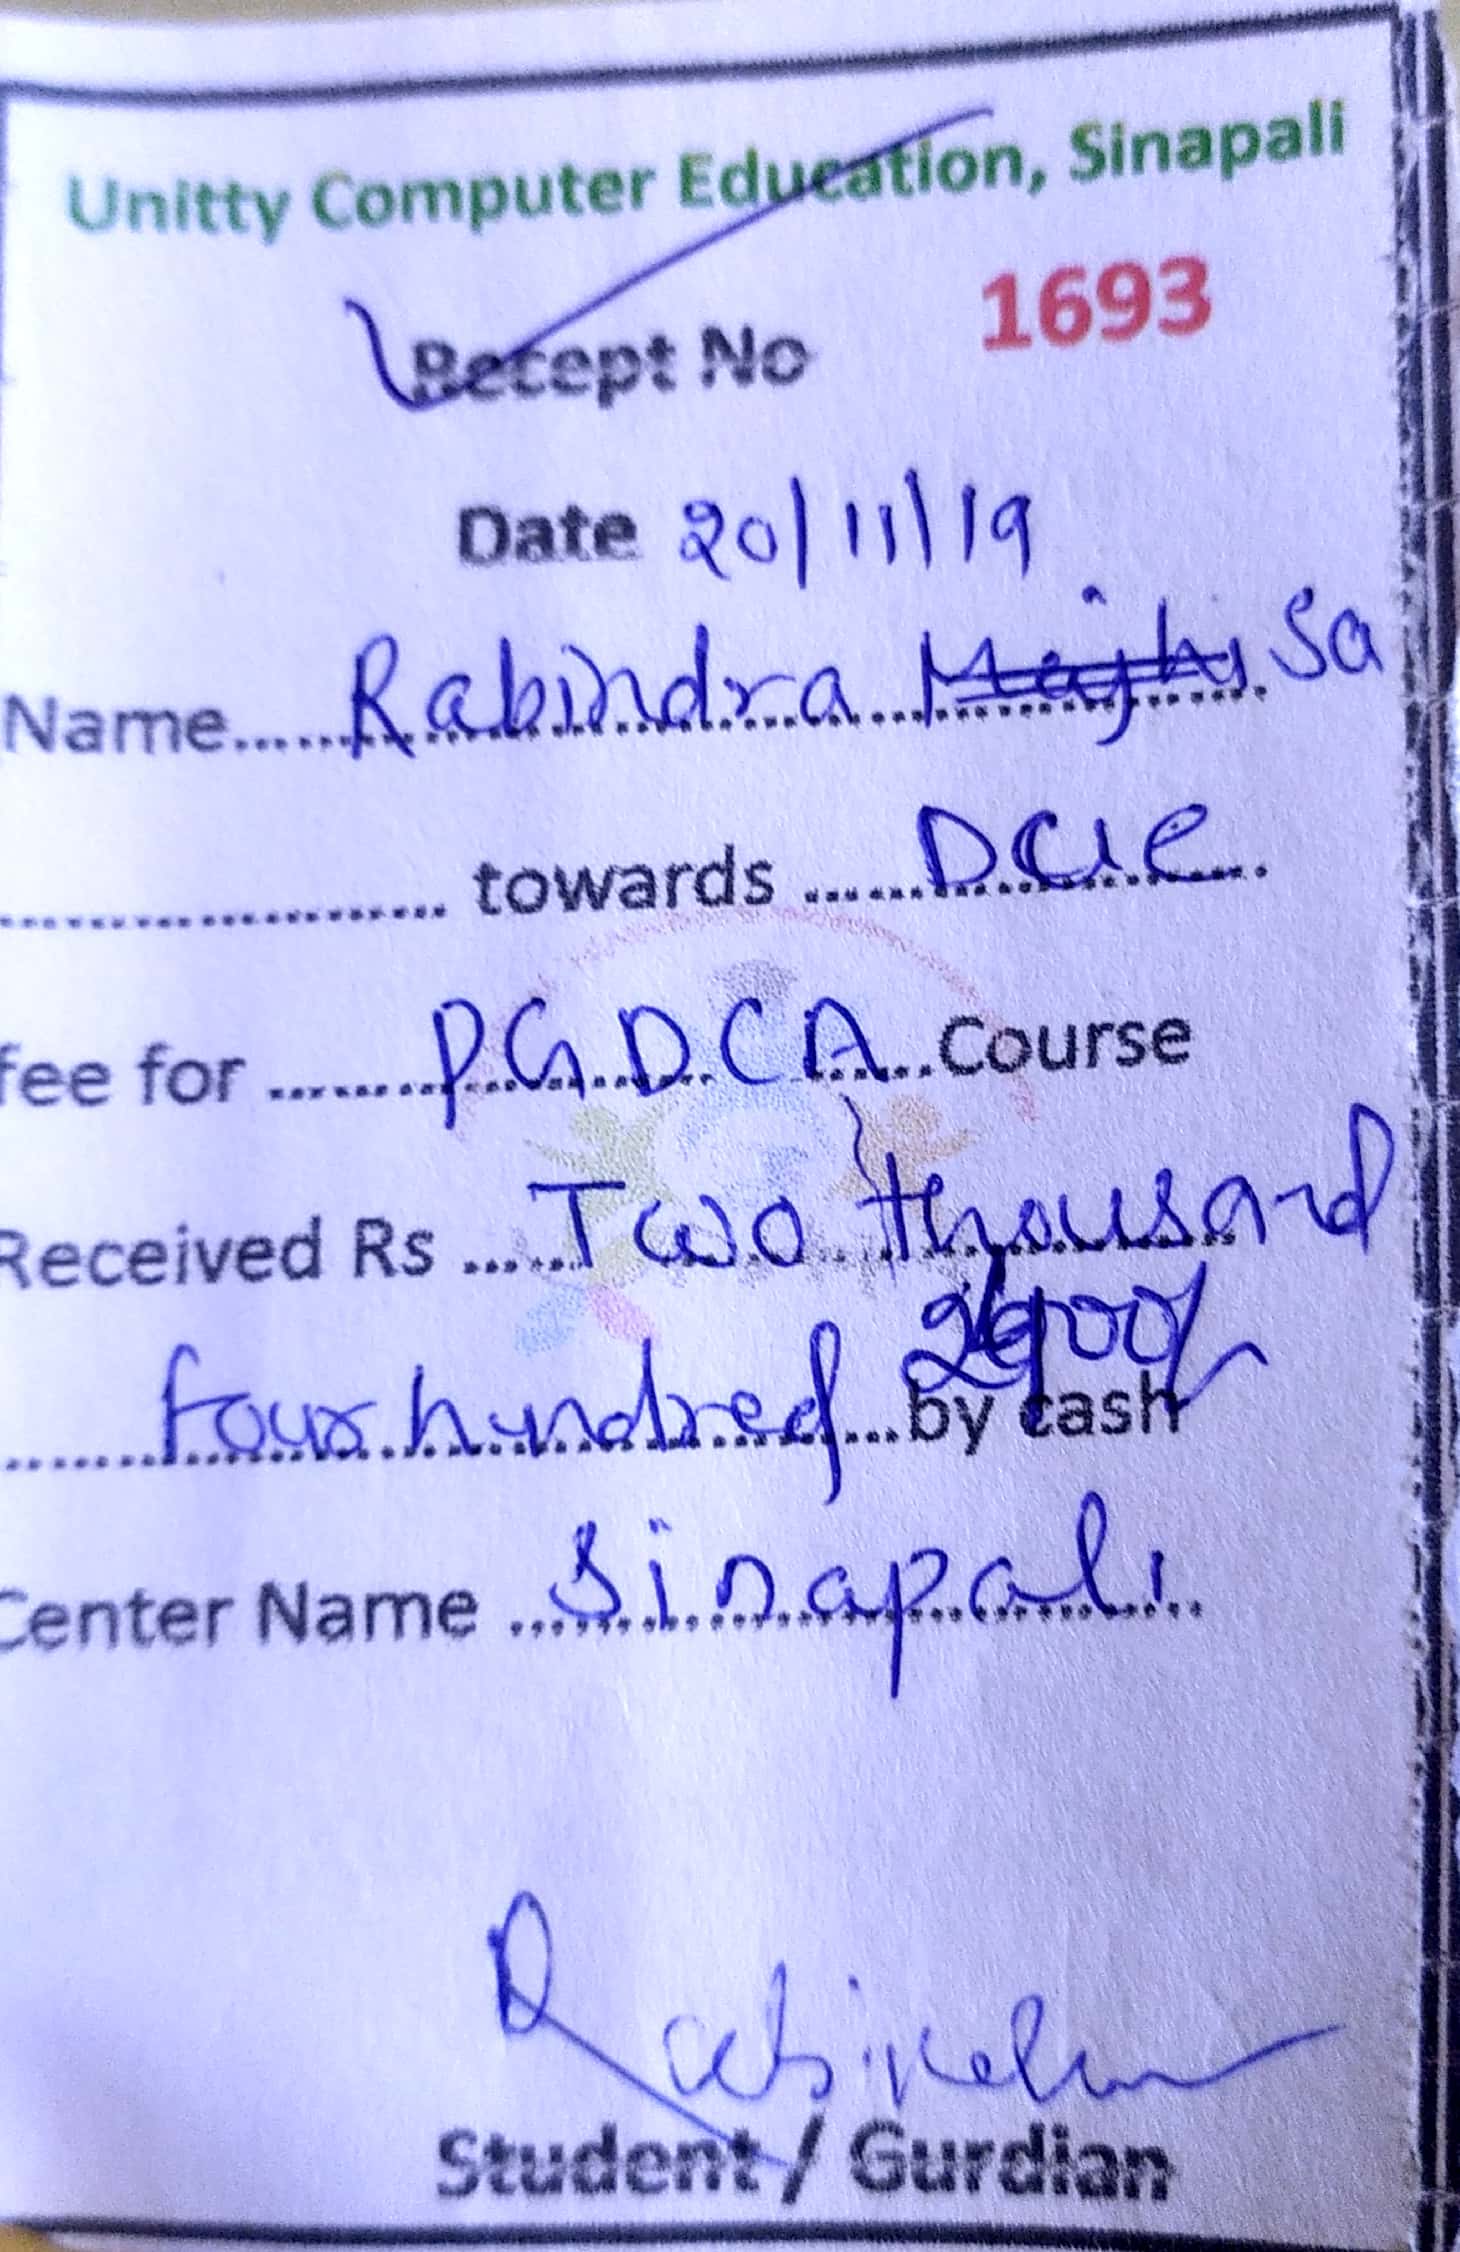 Unitty Computer Education, Sinapali
Recept No 1693
Date 20/11/19
Name......Rabindra Sa
.................... towards ......Due
fee for ........PGDCA...Course
Received Rs ......Two thousand
2400/-
..........four hundred...by cash
Center Name ......Sinapali
Rabindra
Student / Gurdian